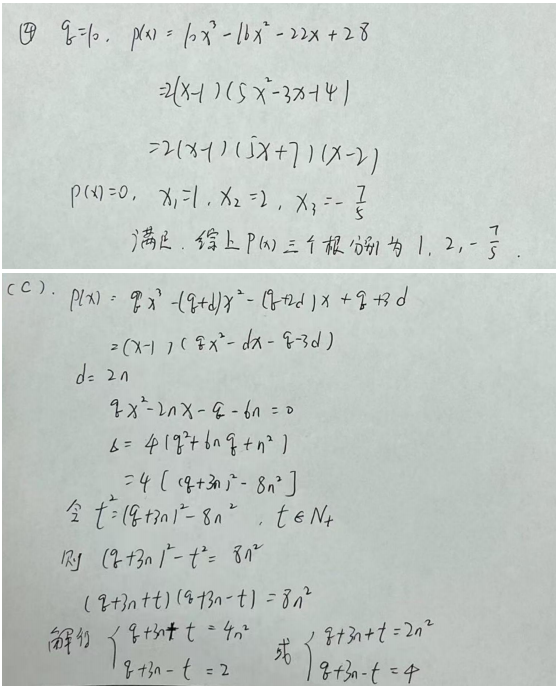 ④ q=10. p(x) = 10x³-16x²-22x+28
=2(x-1)(5x²-3x-14)
=2(x-1)(5x+7)(x-2)
p(x)=0, x₁=1, x₂=2, x₃=-7/5
满足. 综上 P(x) 三个根分别为 1, 2, -7/5.
(C). p(x) = qx³-(q+d)x²-(q+2d)x+q+3d
=(x-1)(qx²-dx-q-3d)
d=2n
qx²-2nx-q-6n=0
Δ=4(q²+6nq+n²)
=4[(q+3n)²-8n²]
令 t²=(q+3n)²-8n², t∈N₊
则 (q+3n)²-t²=8n²
(q+3n+t)(q+3n-t)=8n²
解得 { q+3n+t=4n² 或 { q+3n+t=2n²
q+3n-t=2 q+3n-t=4